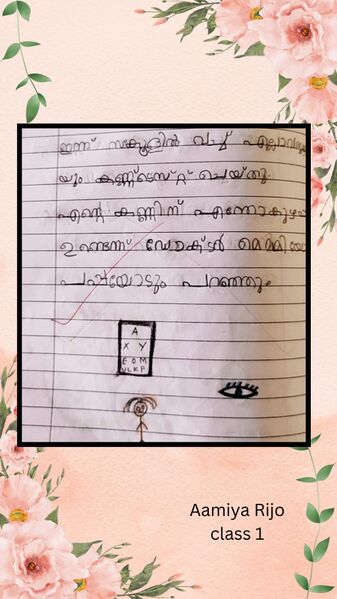 ഇന്ന് സ്കൂളിൽ വച്ച് എല്ലാവരു
യും കണ്ണ് ടെസ്റ്റ് ചെയ്തു.
എന്റെ കണ്ണിന് എന്തോകുഴപ്പ
ഉണ്ടെന്ന് ഡോക്ടർ മെമ്മിയോ
പപ്പയോടും പറഞ്ഞു.
A
X Y
E O M
V L K P
Aamiya Rijo
class 1